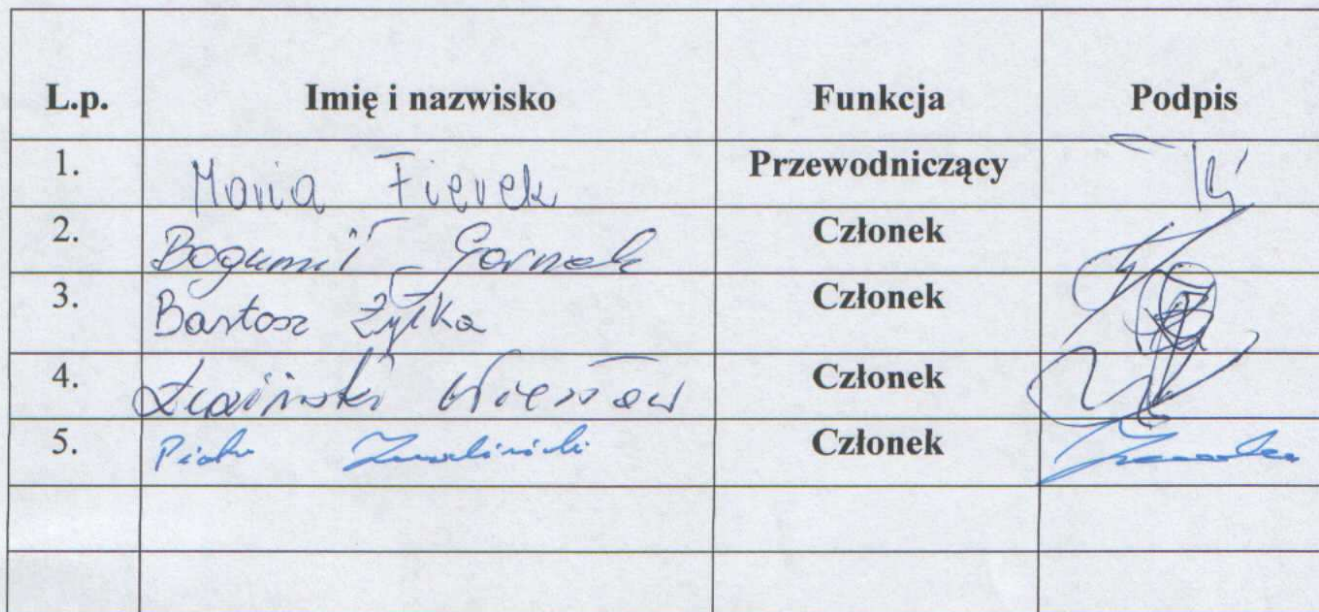 L.p. Imię i nazwisko Funkcja Podpis
1. Maria Fierek Przewodniczący
2. Bogumił Gornek Członek
3. Bartosz Żyłka Członek
4. Wiesław Członek
5. Piotr Członek